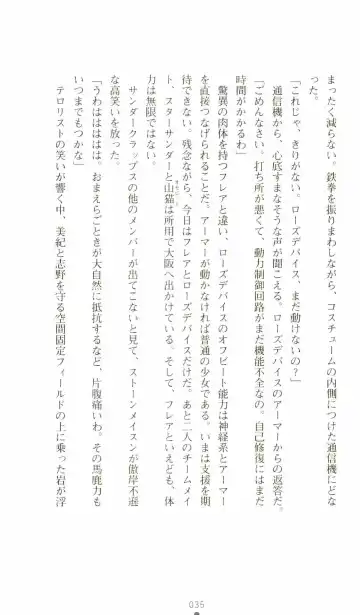 まったく減らない。鉄拳を振りまわしながら、コスチュームの内側につけた通信機にどな
った。
「これじゃ、きりがない。ローズデバイス、まだ動けないの？」
通信機から、心底すまなそうな声が聞こえる。ローズデバイスのアーマーからの返答だ。
「ごめんなさい。打ち所が悪くて、動力制御回路がまだ機能不全なの。自己修復にはまだ
時間がかかるわ」
驚異の肉体を持つフレアと違い、ローズデバイスのオフビート能力は神経系とアーマー
を直接つなげられることだ。アーマーが動かなければ普通の少女である。いまは支援を期
待できない。残念ながら、今日はフレアとローズデバイスだけだ。あと二人のチームメイ
ト、スターサンダーと山猫は所用で大阪へ出かけている。そして、フレアといえども、体
力は無限ではない。
サンダークラップスの他のメンバーが出てこないと見て、ストーンメイスンが傲岸不遜
な高笑いを放った。
「うわはははは。おまえらごときが大自然に抵抗するなど、片腹痛いわ。その馬鹿力も
いつまでもつかな」
テロリストの笑いが響く中、美紀と志野を守る空間固定フィールドの上に乗った岩が浮
035